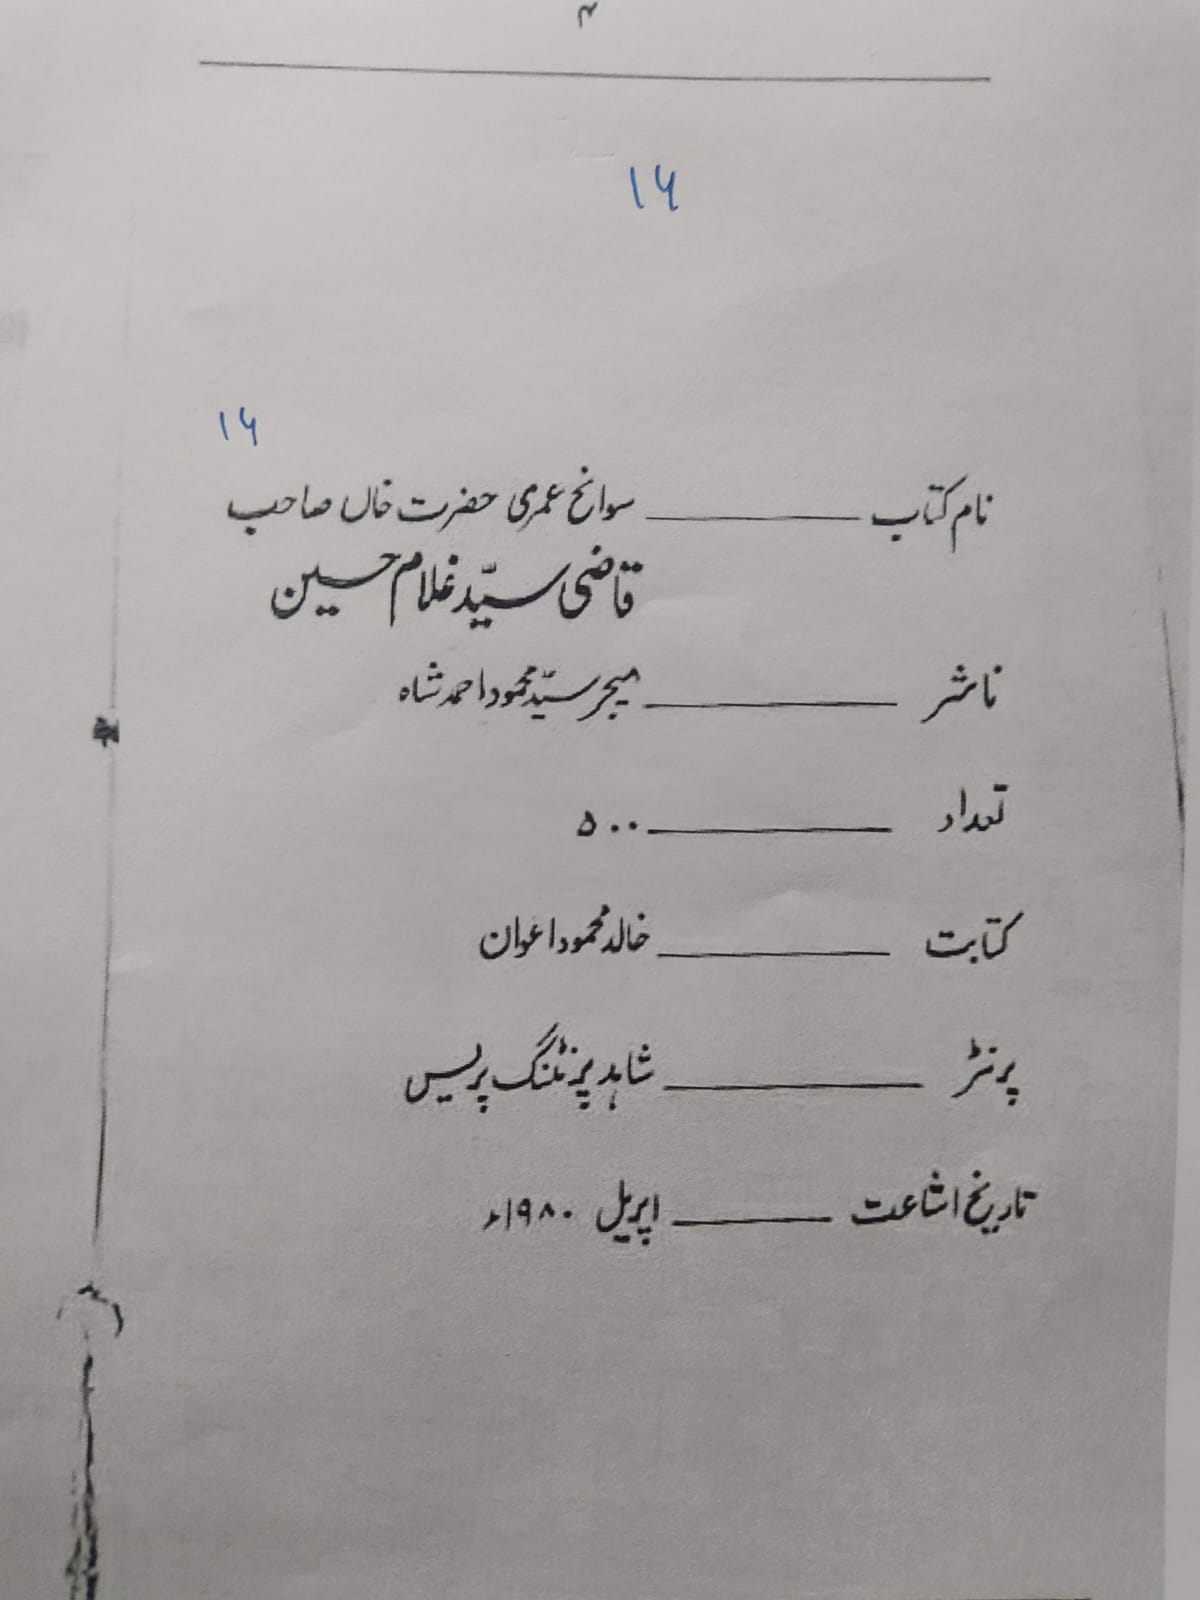 ۴
۱۶
۱۶
نام کتاب ــــــــ سوانح عمری حضرت خاں صاحب
قاضی سیّد غلام حسین
ناشر ــــــــ میجر سیّد محمود احمد شاہ
تعداد ــــــــ ۵۰۰
کتابت ــــــــ خالد محمود اعوان
پرنٹر ــــــــ شاہد پرنٹنگ پریس
تاریخ اشاعت ــــــــ اپریل ۱۹۸۰ء